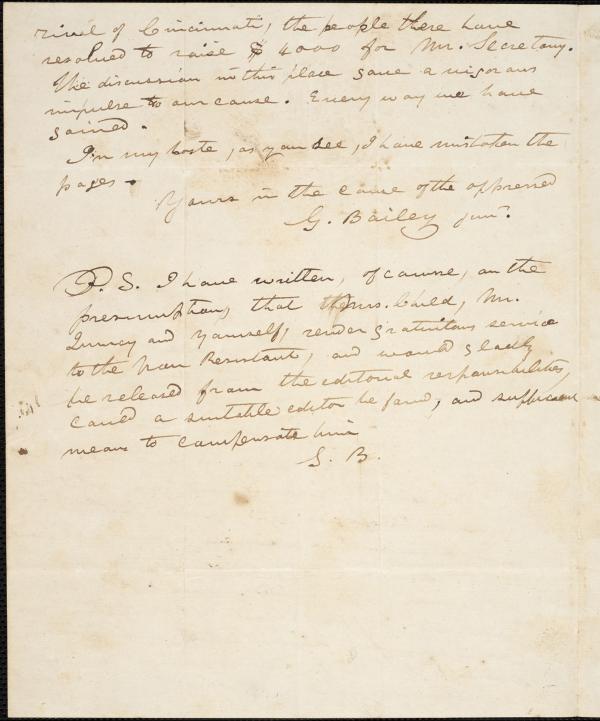 rival of Cincinnati, the people there have
resolved to raise $4000 for Mr. Secretary.
The discussion in this place gave a vigorous
impulse to our cause. Every way we have
gained.
In my haste, as you see, I have mistaken the
pages.
Yours in the cause of the oppressed
G. Bailey jun.
P. S. I have written, of course, on the
presumption, that Mrs. Child, Mr.
Quincy and yourself, render gratuitous service
to the Non Resistant, and would gladly
be released from the editorial responsibilities,
could a suitable editor be found, and sufficient
means to compensate him
G. B.